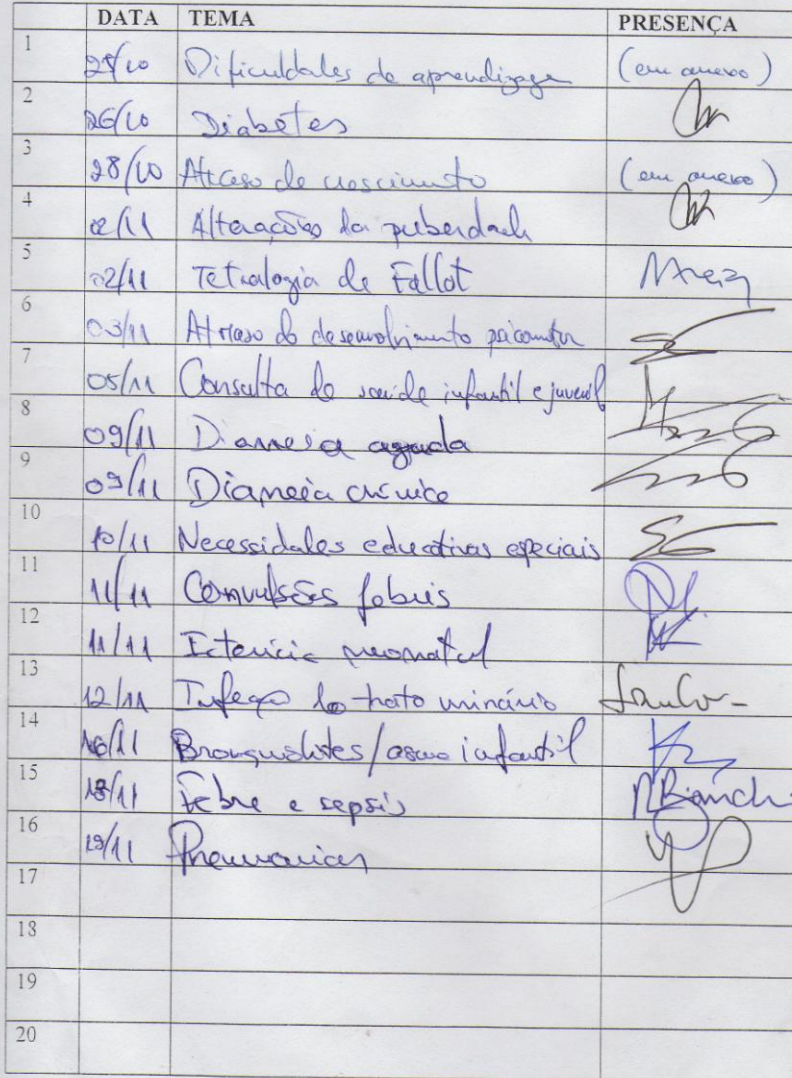 DATA TEMA PRESENÇA
1 Dificuldades de aprendizagem (em anexo)
2 26/10 Diabetes
3 28/10 Atraso de crescimento (em anexo)
4 02/11 Alterações da puberdade
5 02/11 Tetralogia de Fallot
6 03/11 Atraso do desenvolvimento psicomotor
7 05/11 Consulta de saúde infantil e juvenil
8 09/11 Diarreia aguda
9 09/11 Diarreia crónica
10 10/11 Necessidades educativas especiais
11 11/11 Convulsões febris
12 11/11 Icterícia neonatal
13 12/11 Infeção do trato urinário
14 16/11 Bronquiolites/asma infantil
15 18/11 Febre e sepsis
16 19/11 Pneumonias
17
18
19
20